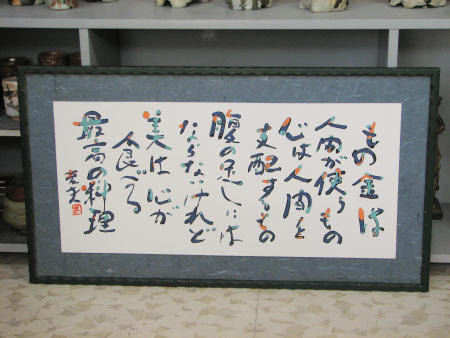 もの金は
人間が使うもの
心は人間を
支配するもの
腹の足しには
ならないけれど
美は心が
食べる
最高の料理